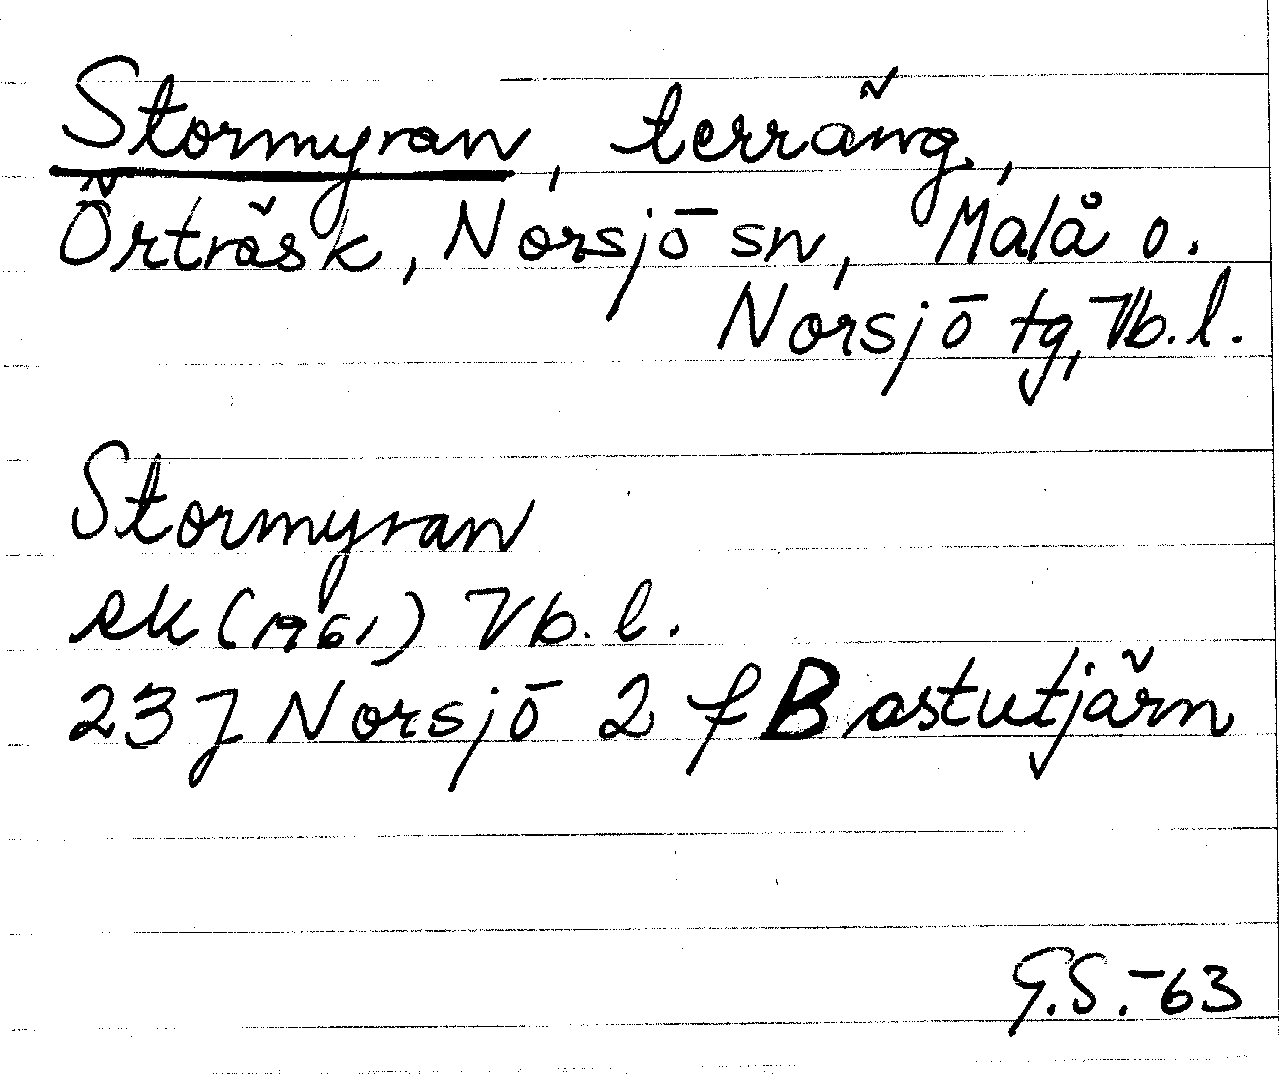 Stormyran, terräng,
Örträsk, Norsjö sn, Malå o.
Norsjö tg, Vb. l.
Stormyran
ek (1961) Vb. l.
23 J Norsjö 2 f Bastutjärn
G.S. -63